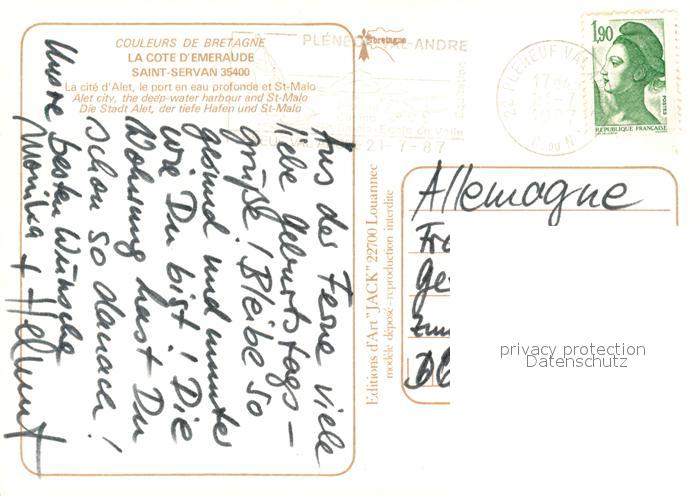 COULEURS DE BRETAGNE
LA COTE D'EMERAUDE
SAINT-SERVAN 35400
La cité d'Alet, le port en eau profonde et St-Malo
Alet city, the deep-water harbour and St-Malo
Die Stadt Alet, der tiefe Hafen und St-Malo
Aus der Ferne viele
liebe Geburtstags-
grüße! Bleibe so
gesund und munter
wie Du bist! Die
Wohnung hast Du
schon so danach!
Unsre besten Wünsche
Monika + Helmut
bretagne
21-7-87
Editions d'Art "JACK" 22700 Louannec
modèle déposé-reproduction interdite
1,90
POSTES
REPUBLIQUE FRANÇAISE
Allemagne
privacy protection
Datenschutz